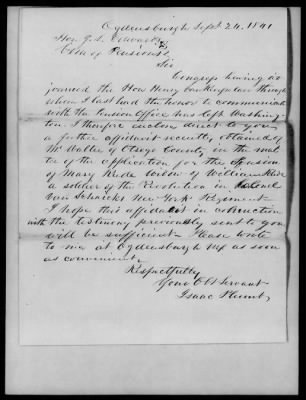 Ogdensburgh Sept 24, 1841
Hon. J. L. Edwards
Com. of Pensions
Sir
Congress having ad
journed the Hon Henry Van Rensselaer through
whom I last had the honor to communicate
with the Pension Office has left Washing-
ton. I therefore enclose direct to you
a further affidavit recently obtained of
Mr Waller of Otsego County in the mat
ter of the application for the Pension
of Mary widow of William
a soldier of the Revolution in Colonel
Van Schaicks New York Regiment
I hope this affidavit in connection
with the testimony previously sent to you
will be sufficient. Please write
to me at Ogdensburgh NY as soon
as convenient.
Respectfully
Your Obt Servant
Isaac